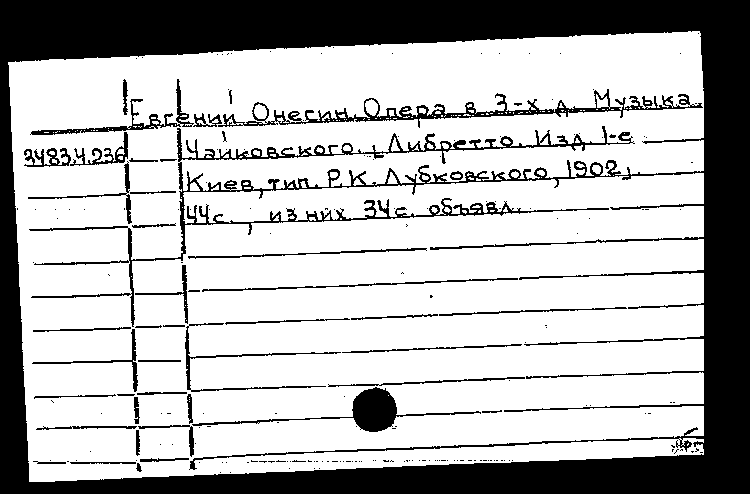 Евгений Онегин. Опера в 3-х д. Музыка
3483.4.236 Чайковского. Либретто. Изд. 1-е
Киев, тип. Р.К. Лубковского, 1902.
44с., из них 34с. объявл.